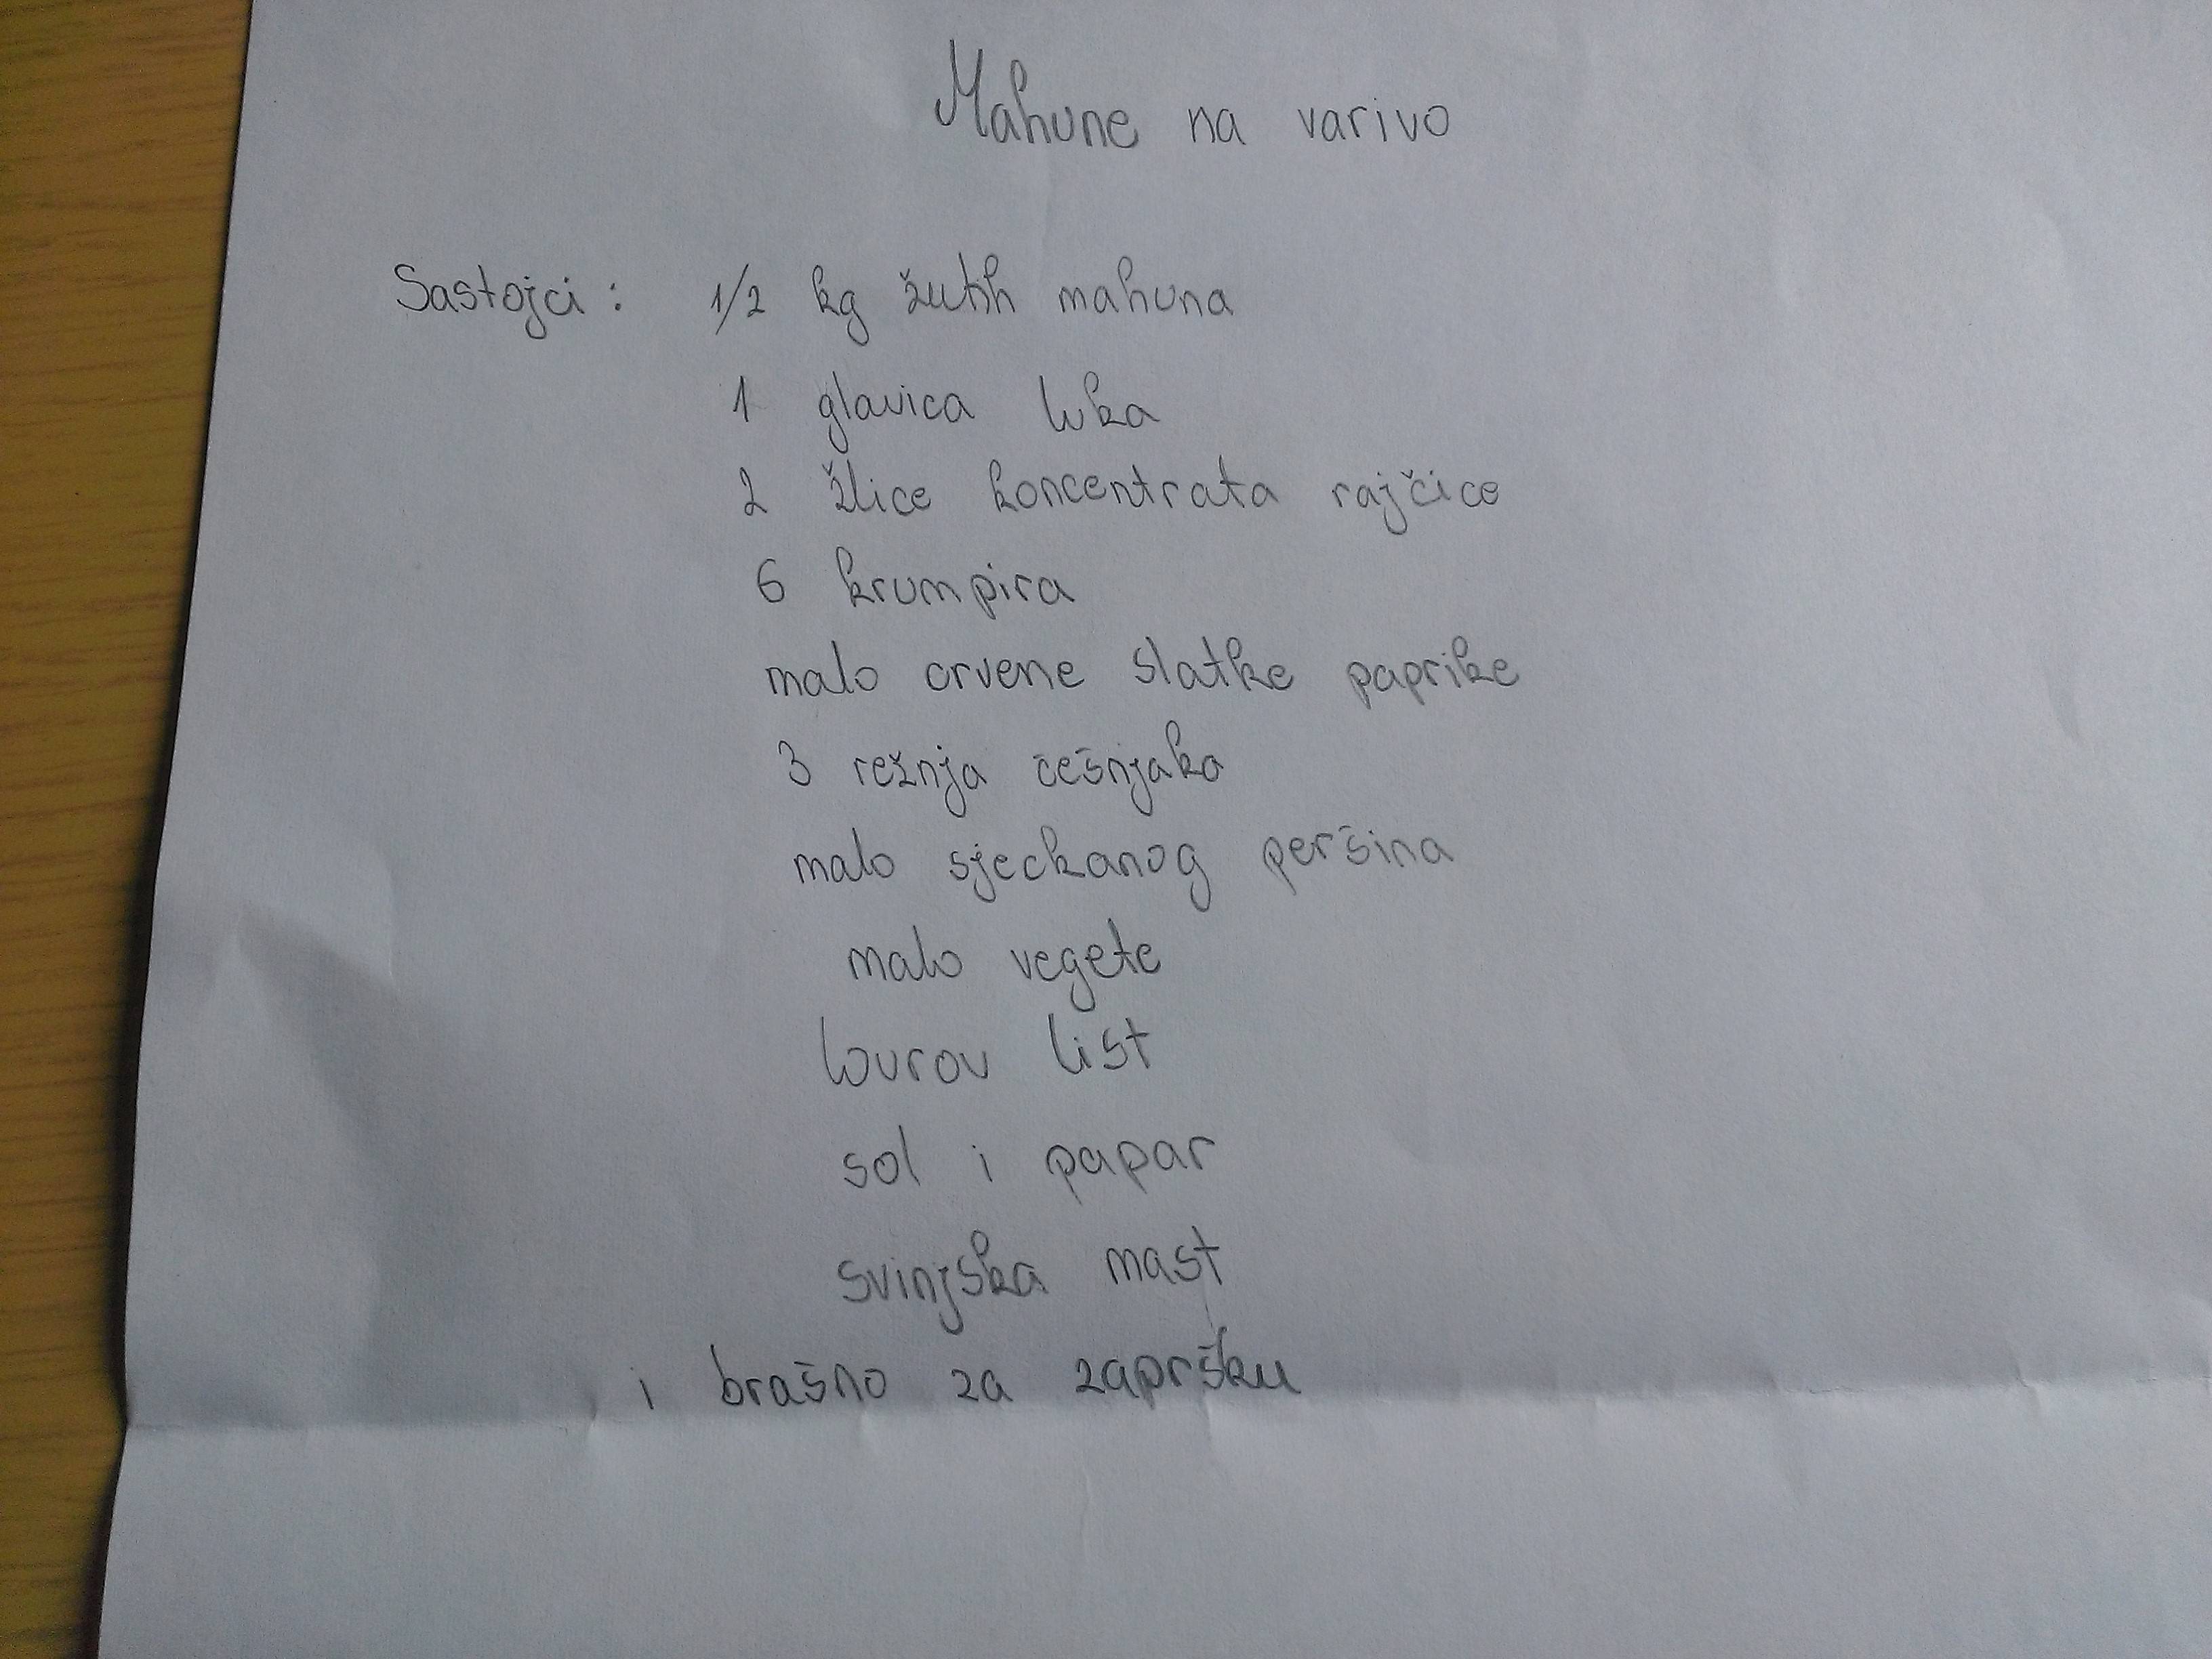 Mahune na varivo
Sastojci: 1/2 kg žutih mahuna
1 glavica luka
2 žlice koncentrata rajčice
6 krumpira
malo crvene slatke paprike
3 režnja češnjaka
malo sjeckanog peršina
malo vegete
lovrov list
sol i papar
svinjska mast
i brašno za zapršku